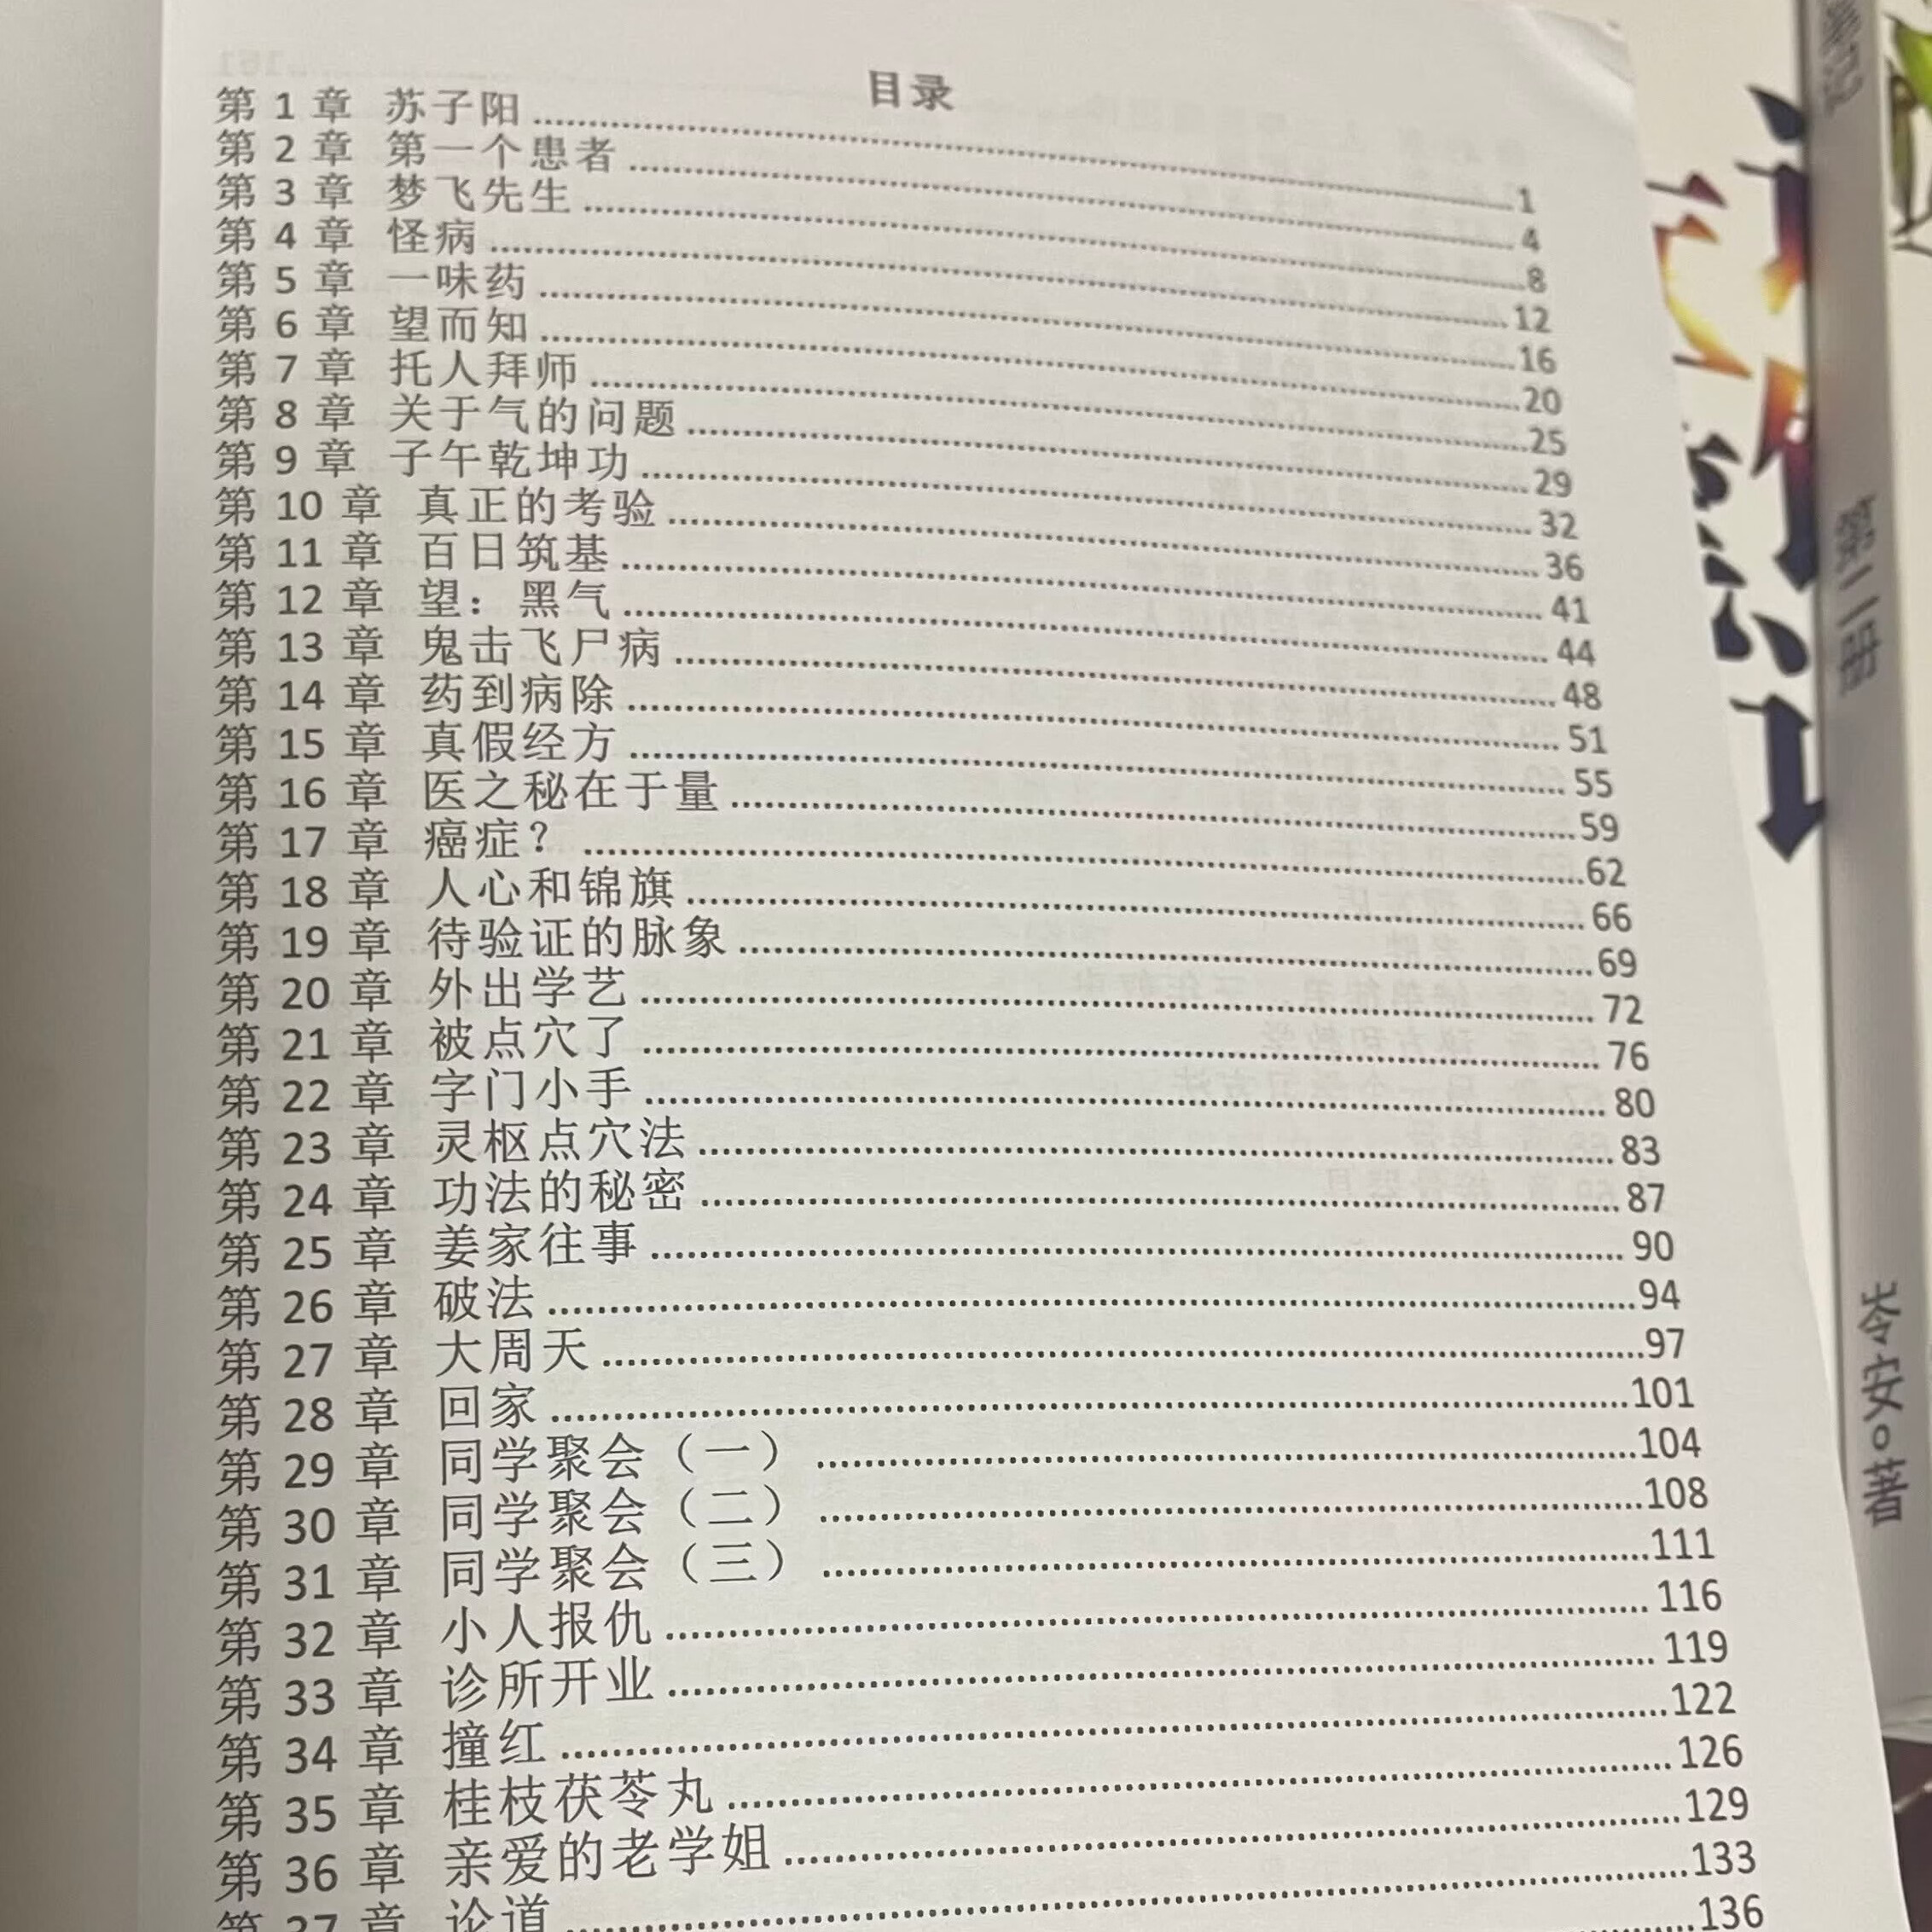 目录
第 1 章 苏子阳........1
第 2 章 第一个患者........4
第 3 章 梦飞先生........8
第 4 章 怪病........12
第 5 章 一味药........16
第 6 章 望而知........20
第 7 章 托人拜师........25
第 8 章 关于气的问题........29
第 9 章 子午乾坤功........32
第 10 章 真正的考验........36
第 11 章 百日筑基........41
第 12 章 望：黑气........44
第 13 章 鬼击飞尸病........48
第 14 章 药到病除........51
第 15 章 真假经方........55
第 16 章 医之秘在于量........59
第 17 章 癌症？........62
第 18 章 人心和锦旗........66
第 19 章 待验证的脉象........69
第 20 章 外出学艺........72
第 21 章 被点穴了........76
第 22 章 字门小手........80
第 23 章 灵枢点穴法........83
第 24 章 功法的秘密........87
第 25 章 姜家往事........90
第 26 章 破法........94
第 27 章 大周天........97
第 28 章 回家........101
第 29 章 同学聚会（一）........104
第 30 章 同学聚会（二）........108
第 31 章 同学聚会（三）........111
第 32 章 小人报仇........116
第 33 章 诊所开业........119
第 34 章 撞红........122
第 35 章 桂枝茯苓丸........126
第 36 章 亲爱的老学姐........129
第 37 章 论道........133
136
第二册
岑安。著